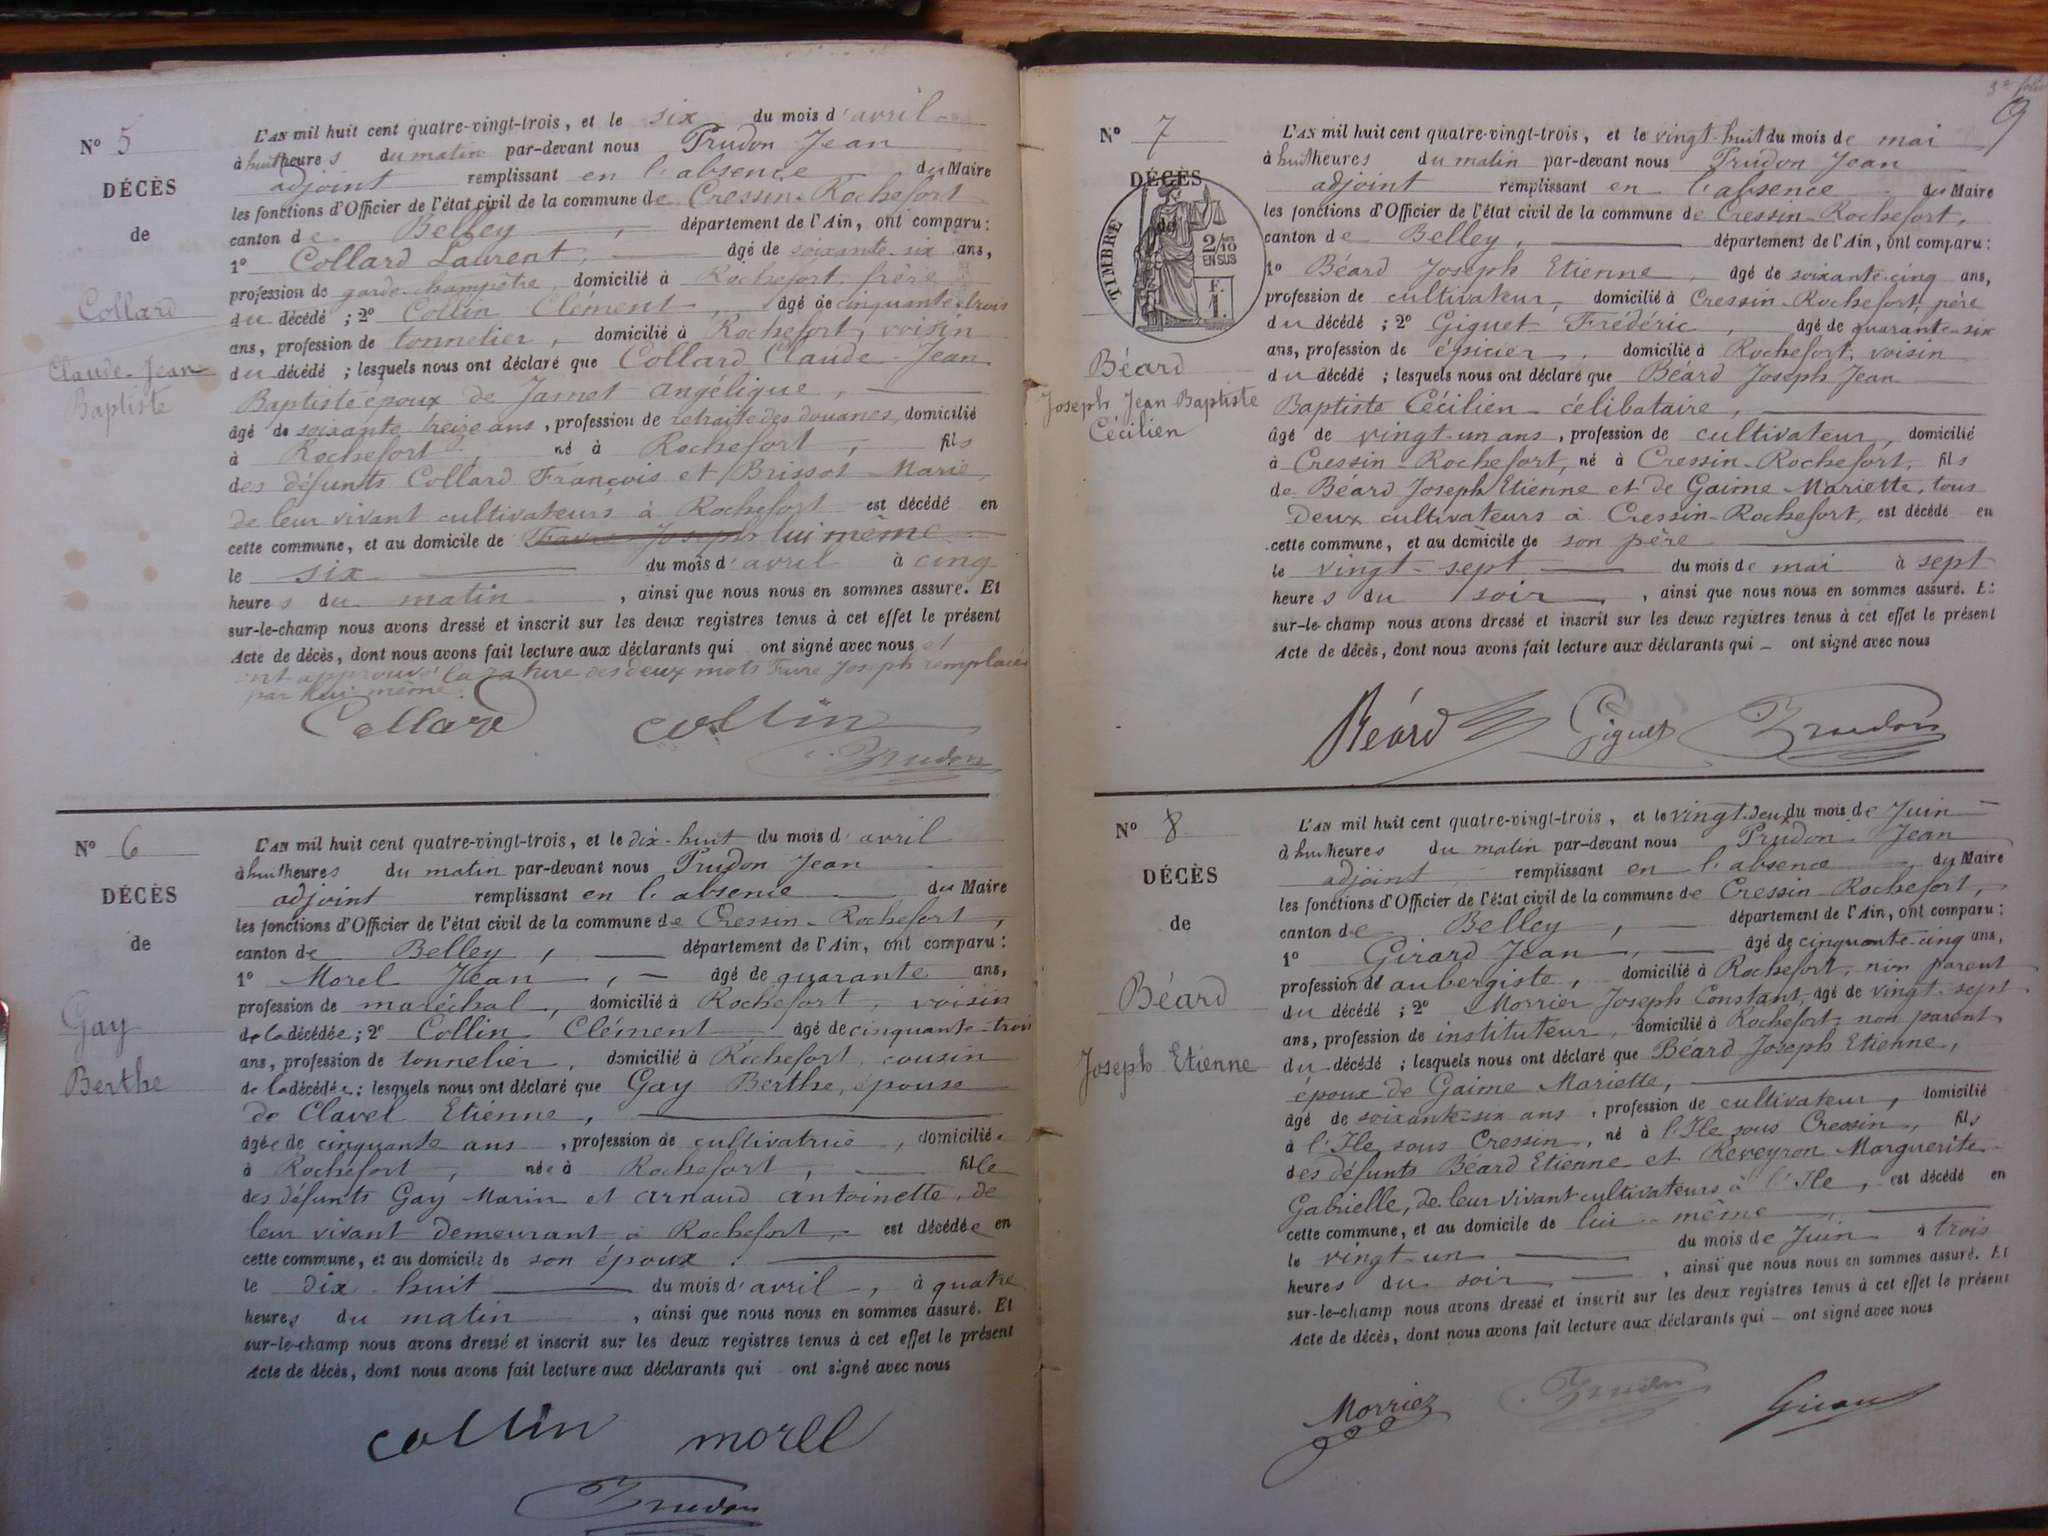 N° 5
DÉCÈS
de
Collard
Claude-Jean
Baptiste
L'AN mil huit cent quatre-vingt-trois, et le six du mois d'avril
à huit heures du matin par-devant nous Prudon Jean
adjoint remplissant en l'absence du Maire
les fonctions d'Officier de l'état civil de la commune de Cressin-Rochefort
canton de Belley, département de l'Ain, ont comparu :
1° Collard Laurent, âgé de soixante-six ans,
profession de garde-champêtre, domicilié à Rochefort, frère
du décédé ; 2° Collin Clément, âgé de cinquante-trois
ans, profession de tonnelier, domicilié à Rochefort, voisin
du décédé ; lesquels nous ont déclaré que Collard Claude-Jean
Baptiste époux de Jamet Angélique,
âgé de soixante treize ans, profession de retraité des douanes, domicilié
à Rochefort, né à Rochefort, fils
des défunts Collard François et Brissot Marie,
de leur vivant cultivateurs à Rochefort est décédé en
cette commune, et au domicile de Favre Joseph lui même
le six du mois d'avril à cinq
heures du matin, ainsi que nous nous en sommes assuré. Et
sur-le-champ nous avons dressé et inscrit sur les deux registres tenus à cet effet le présent
Acte de décès, dont nous avons fait lecture aux déclarants qui ont signé avec nous et
ont approuvé la rature des deux mots Favre Joseph remplacés
par lui même.
Collard Collin
Prudon
N° 6
DÉCÈS
de
Gay
Berthe
L'AN mil huit cent quatre-vingt-trois, et le dix-huit du mois d'avril
à huit heures du matin par-devant nous Prudon Jean
adjoint remplissant en l'absence du Maire
les fonctions d'Officier de l'état civil de la commune de Cressin-Rochefort,
canton de Belley, département de l'Ain, ont comparu :
1° Morel Jean, âgé de quarante ans,
profession de maréchal, domicilié à Rochefort, voisin
de la décédée ; 2° Collin Clément, âgé de cinquante-trois
ans, profession de tonnelier, domicilié à Rochefort, cousin
de la décédée ; lesquels nous ont déclaré que Gay Berthe, épouse
de Clavel Etienne,
âgée de cinquante ans, profession de cultivatrice, domiciliée
à Rochefort, née à Rochefort, fille
des défunts Gay Marin et Arnaud Antoinette, de
leur vivant demeurant à Rochefort, est décédée en
cette commune, et au domicile de son époux.
le dix-huit du mois d'avril, à quatre
heures du matin, ainsi que nous nous en sommes assuré. Et
sur-le-champ nous avons dressé et inscrit sur les deux registres tenus à cet effet le présent
Acte de décès, dont nous avons fait lecture aux déclarants qui ont signé avec nous
Collin morel
Prudon
9
N° 7
DÉCÈS
de
TIMBRE
2/10
EN SUS
F.
1.
Béard
Joseph Jean-Baptiste
Cécilien
L'AN mil huit cent quatre-vingt-trois, et le vingt-huit du mois de mai
à huit heures du matin par-devant nous Prudon Jean
adjoint remplissant en l'absence du Maire
les fonctions d'Officier de l'état civil de la commune de Cressin-Rochefort,
canton de Belley, département de l'Ain, ont comparu :
1° Béard Joseph Etienne, âgé de soixante-cinq ans,
profession de cultivateur, domicilié à Cressin-Rochefort, père
du décédé ; 2° Giguet Frédéric, âgé de quarante-six
ans, profession de épicier, domicilié à Rochefort, voisin
du décédé ; lesquels nous ont déclaré que Béard Joseph Jean
Baptiste Cécilien célibataire,
âgé de vingt-un ans, profession de cultivateur, domicilié
à Cressin-Rochefort, né à Cressin-Rochefort, fils
de Béard Joseph Etienne et de Gaime Mariette, tous
deux cultivateurs à Cressin-Rochefort, est décédé en
cette commune, et au domicile de son père
le vingt-sept du mois de mai à sept
heures du soir, ainsi que nous nous en sommes assuré. Et
sur-le-champ nous avons dressé et inscrit sur les deux registres tenus à cet effet le présent
Acte de décès, dont nous avons fait lecture aux déclarants qui ont signé avec nous
Béard Giguet Prudon
N° 8
DÉCÈS
de
Béard
Joseph Etienne
L'AN mil huit cent quatre-vingt-trois, et le vingt-deux du mois de Juin
à huit heures du matin par-devant nous Prudon Jean
adjoint remplissant en l'absence du Maire
les fonctions d'Officier de l'état civil de la commune de Cressin-Rochefort,
canton de Belley, département de l'Ain, ont comparu :
1° Girard Jean, âgé de cinquante-cinq ans,
profession de aubergiste, domicilié à Rochefort, non parent
du décédé ; 2° Morrier Joseph Constant, âgé de vingt-sept
ans, profession de instituteur, domicilié à Rochefort, non parent
du décédé ; lesquels nous ont déclaré que Béard Joseph Etienne,
époux de Gaime Mariette,
âgé de soixante-six ans, profession de cultivateur, domicilié
à l'Ile sous Cressin, né à l'Ile sous Cressin, fils
des défunts Béard Etienne et Reveyron Marguerite
Gabrielle, de leur vivant cultivateurs à l'Ile, est décédé en
cette commune, et au domicile de lui-même,
le vingt-un du mois de Juin à trois
heures du soir, ainsi que nous nous en sommes assuré. Et
sur-le-champ nous avons dressé et inscrit sur les deux registres tenus à cet effet le présent
Acte de décès, dont nous avons fait lecture aux déclarants qui ont signé avec nous
Morrier Prudon Girard